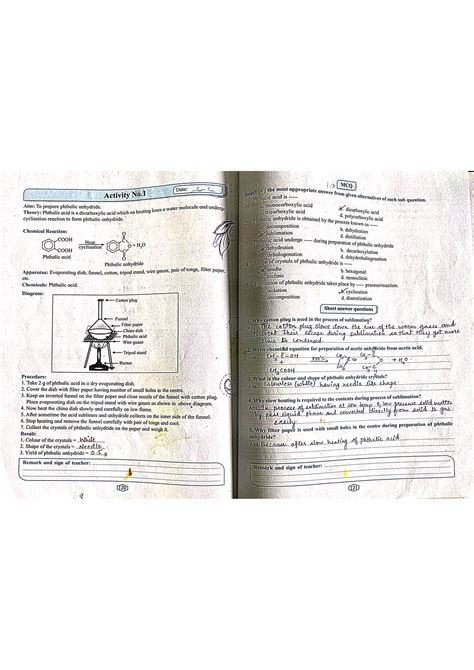 Activity No.1
Date:
Aim: To prepare phthalic anhydride.
Theory: Phthalic acid is a dicarboxylic acid which on heating loses a water molecule and undergo
cyclisation reaction to form phthalic anhydride.
Chemical Reaction:
COOH
COOH
Heat
cyclisation
O + H₂O
Phthalic acid
Phthalic anhydride
Apparatus: Evaporating dish, funnel, cotton, tripod stand, wire gauze, pair of tongs, filter paper,
etc.
Chemicals: Phthalic acid.
Diagram:
Cotton plug
Funnel
Filter paper
China dish
Phthalic acid
Wire gauze
Tripod stand
Burner
Procedure:
1. Take 2 g of phthalic acid in a dry evaporating dish.
2. Cover the dish with filter paper having number of small holes in the centre.
3. Keep an inverted funnel on the filter paper and close nozzle of the funnel with cotton plug.
Place evaporating dish on the tripod stand with wire gauze as shown in above diagram.
4. Now heat the china dish slowly and carefully on low flame.
5. After sometime acid sublimes and anhydride collects on the inner side of the funnel.
6. Stop heating and remove the funnel carefully with pair of tongs and cool.
7. Collect the crystals of phthalic anhydride on the paper and weigh it.
Result:
1. Colour of the crystals = White
2. Shape of the crystals = Needle
3. Yield of phthalic anhydride = 0.5 g
Remark and sign of teacher:
120
MCQ
Select of the most appropriate answer from given alternatives of each sub question.
Phthalic acid is
monocarboxylic acid
dicarboxylic acid
tricarboxylic acid
d. polycarboxylic acid
Phthalic anhydride is obtained by the process known as
decomposition
b. dehydration
sublimation
d. distillation
Phthalic acid undergo during preparation of phthalic anhydride
dehydration
b. decarboxylation
decomposition
d. dehydrohalogenation
of crystals of phthalic anhydride is
needle
b. hexagonal
triclinic
d. monoclinic
of phthalic anhydride takes place by process/reaction
cyclisation
decomposition
d. dehydration
Short answer questions
1. Why cotton plug is used in the process of sublimation?
The cotton plug slows down the rise of the warm gases and
prevent their escape during sublimation so that they get more
time to condensed
2. Write chemical equation for preparation of acetic anhydride from acetic acid.
H₂O
3. What is the colour and shape of phthalic anhydride crystals?
colourless (white) having needle like shape
4. Why slow heating is required to the contents during process of sublimation?
Ans In process of sublimation at low temp. & low pressure solid matter
by pass liquid phase and converted directly from solid to gas
easily
5. Why filter paper is used with small holes in the centre during preparation of phthalic
anhydride?
Ans Because after slow heating of phthalic acid
Remark and sign of teacher:
121